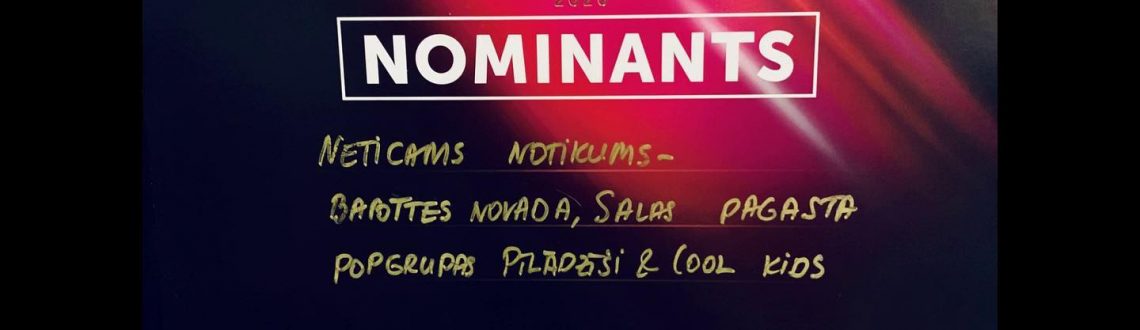 2020
NOMINANTS
NETICAMS NOTIKUMS-
BABĪTES NOVADA, SALAS PAGASTA
POPGRUPAS PĪLĀDZĪŠI & COOL KIDS